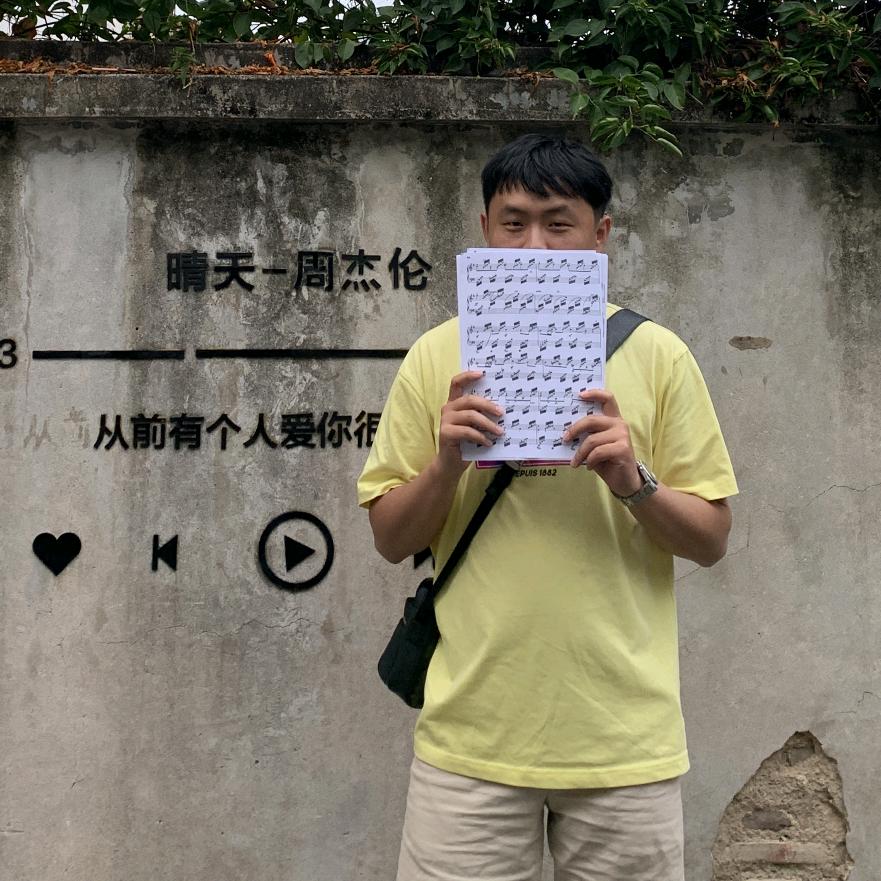 晴天-周杰伦
3
从前
从前有个人爱你很
EPUIS 1882